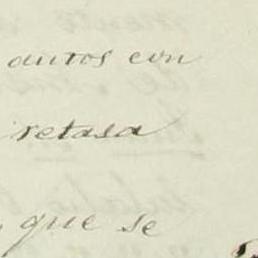 autos con
retasa
, que se